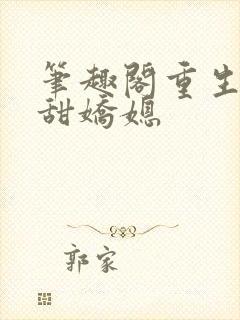 筆趣閣重生
甜嬌媳
郭家